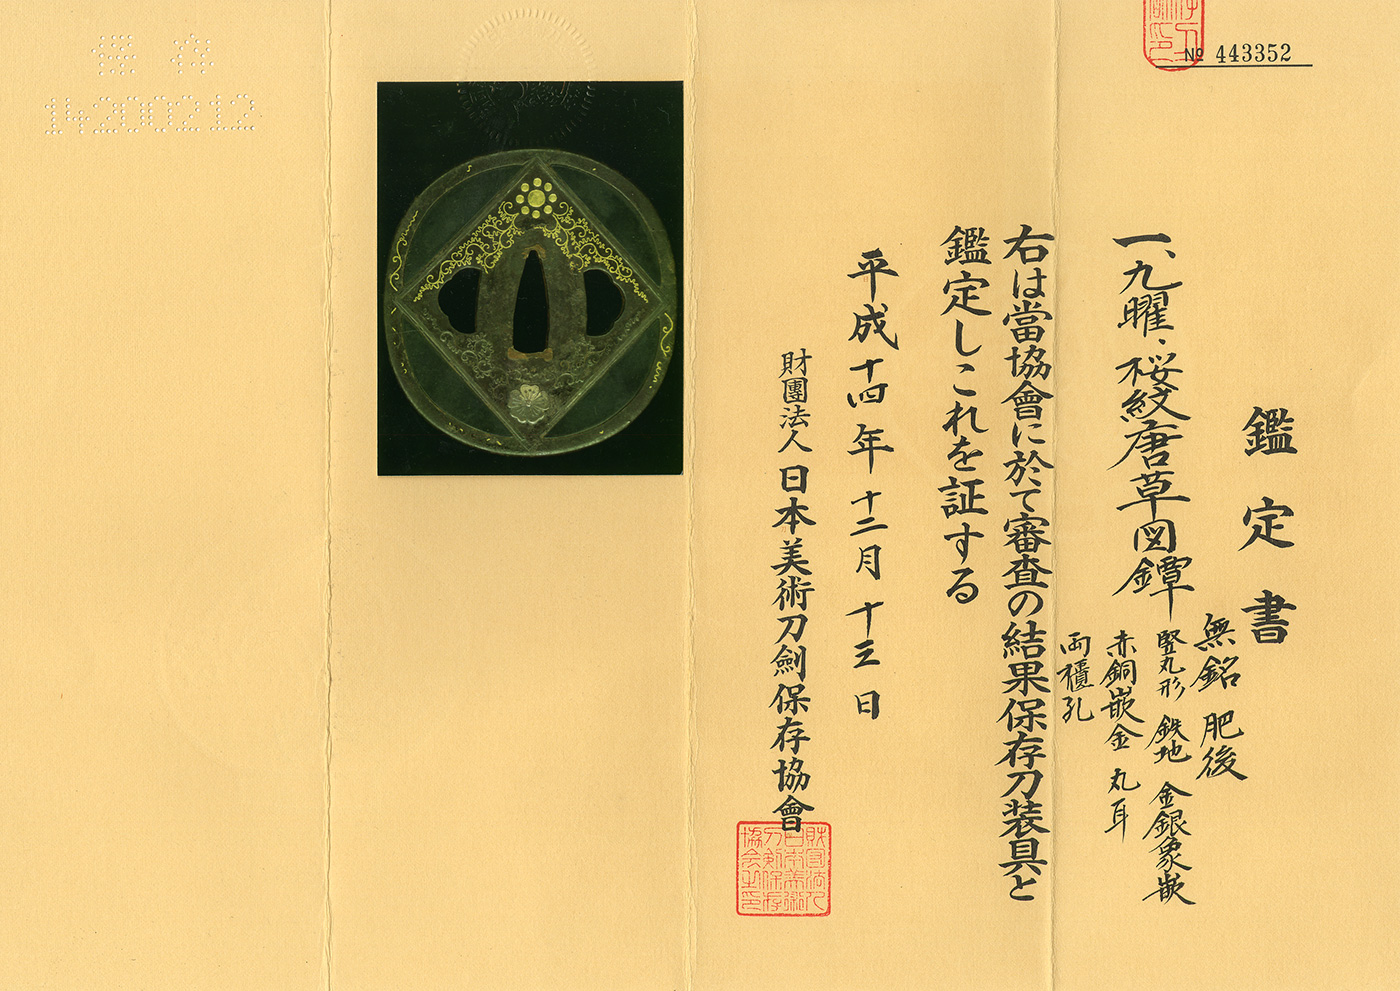 № 443352
鑑定書
一、九曜、桜紋唐草図鐔
無銘 肥後
竪丸形 鉄地 金銀象嵌
赤銅嵌金 丸耳
両櫃孔
右は當協會に於て審査の結果保存刀装具と
鑑定しこれを証する
平成十四年十二月十三日
財團法人日本美術刀劍保存協會
保存
14200212